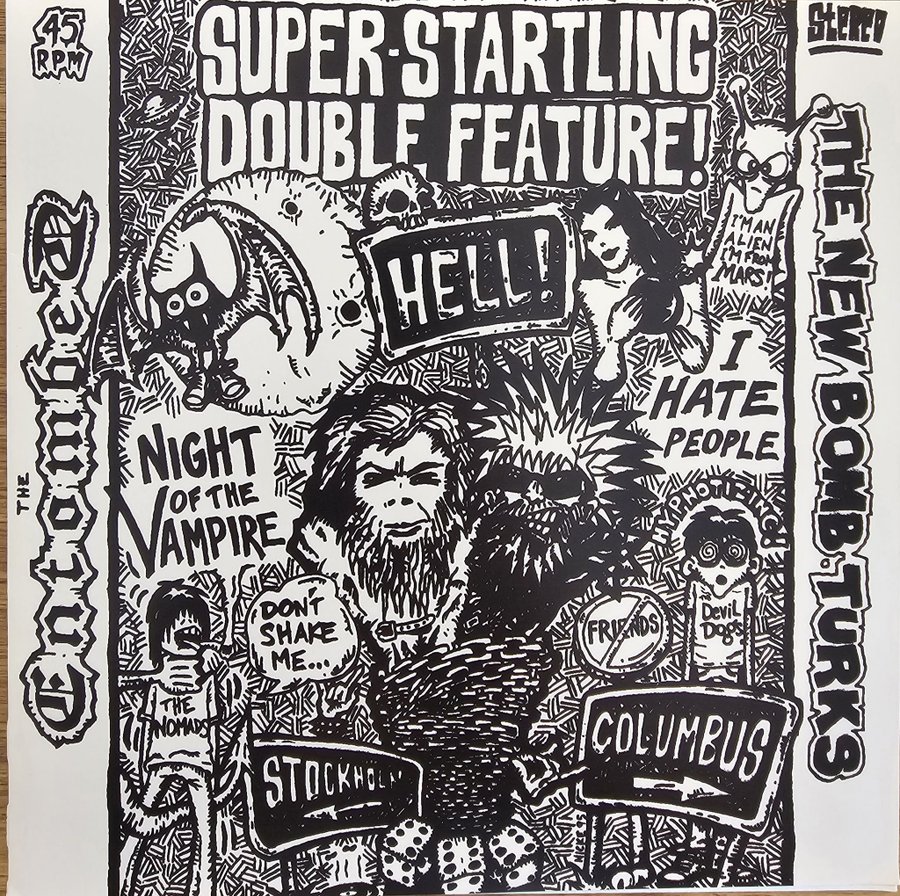 45
RPM
SUPER-STARTLING
DOUBLE FEATURE!
STEREO
THE
Entombed
THE NEW BOMB TURKS
HELL!
I'M AN
ALIEN
I'M FROM
MARS!
I
HATE
PEOPLE
NIGHT
OF THE
VAMPIRE
HYPNOTIZIN'
DON'T
SHAKE
ME...
FRIENDS
DEVIL
DOGS
THE
NOMADS
STOCKHOLM
COLUMBUS